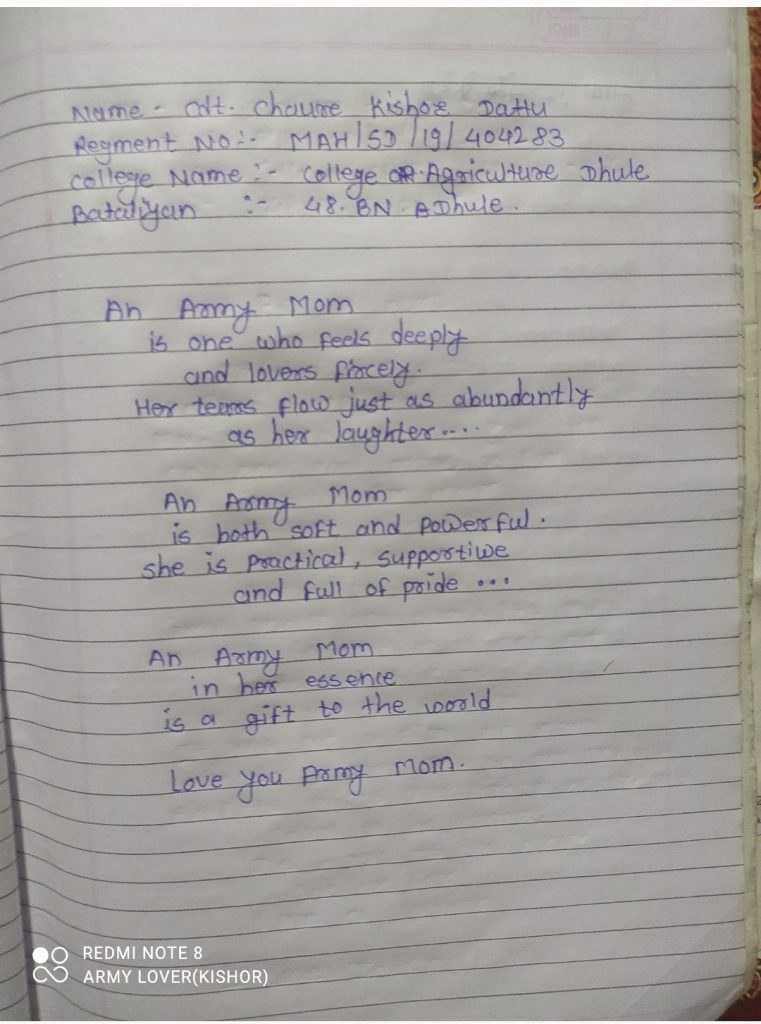 Name - Cdt. Chaure Kishor Dattu
Regment No :- MAH/SD/19/404283
College Name :- College OF Agriculture Dhule
Bataliyan :- 48. BN. Dhule.
An Army Mom
is one who feels deeply
and lovers fircely.
Her tears flow just as abundantly
as her laughter....
An Army Mom
is both soft and powerful.
she is practical, supportiwe
and full of pride ...
An Army Mom
in her essence
is a gift to the world
Love you Army Mom.
REDMI NOTE 8
ARMY LOVER(KISHOR)